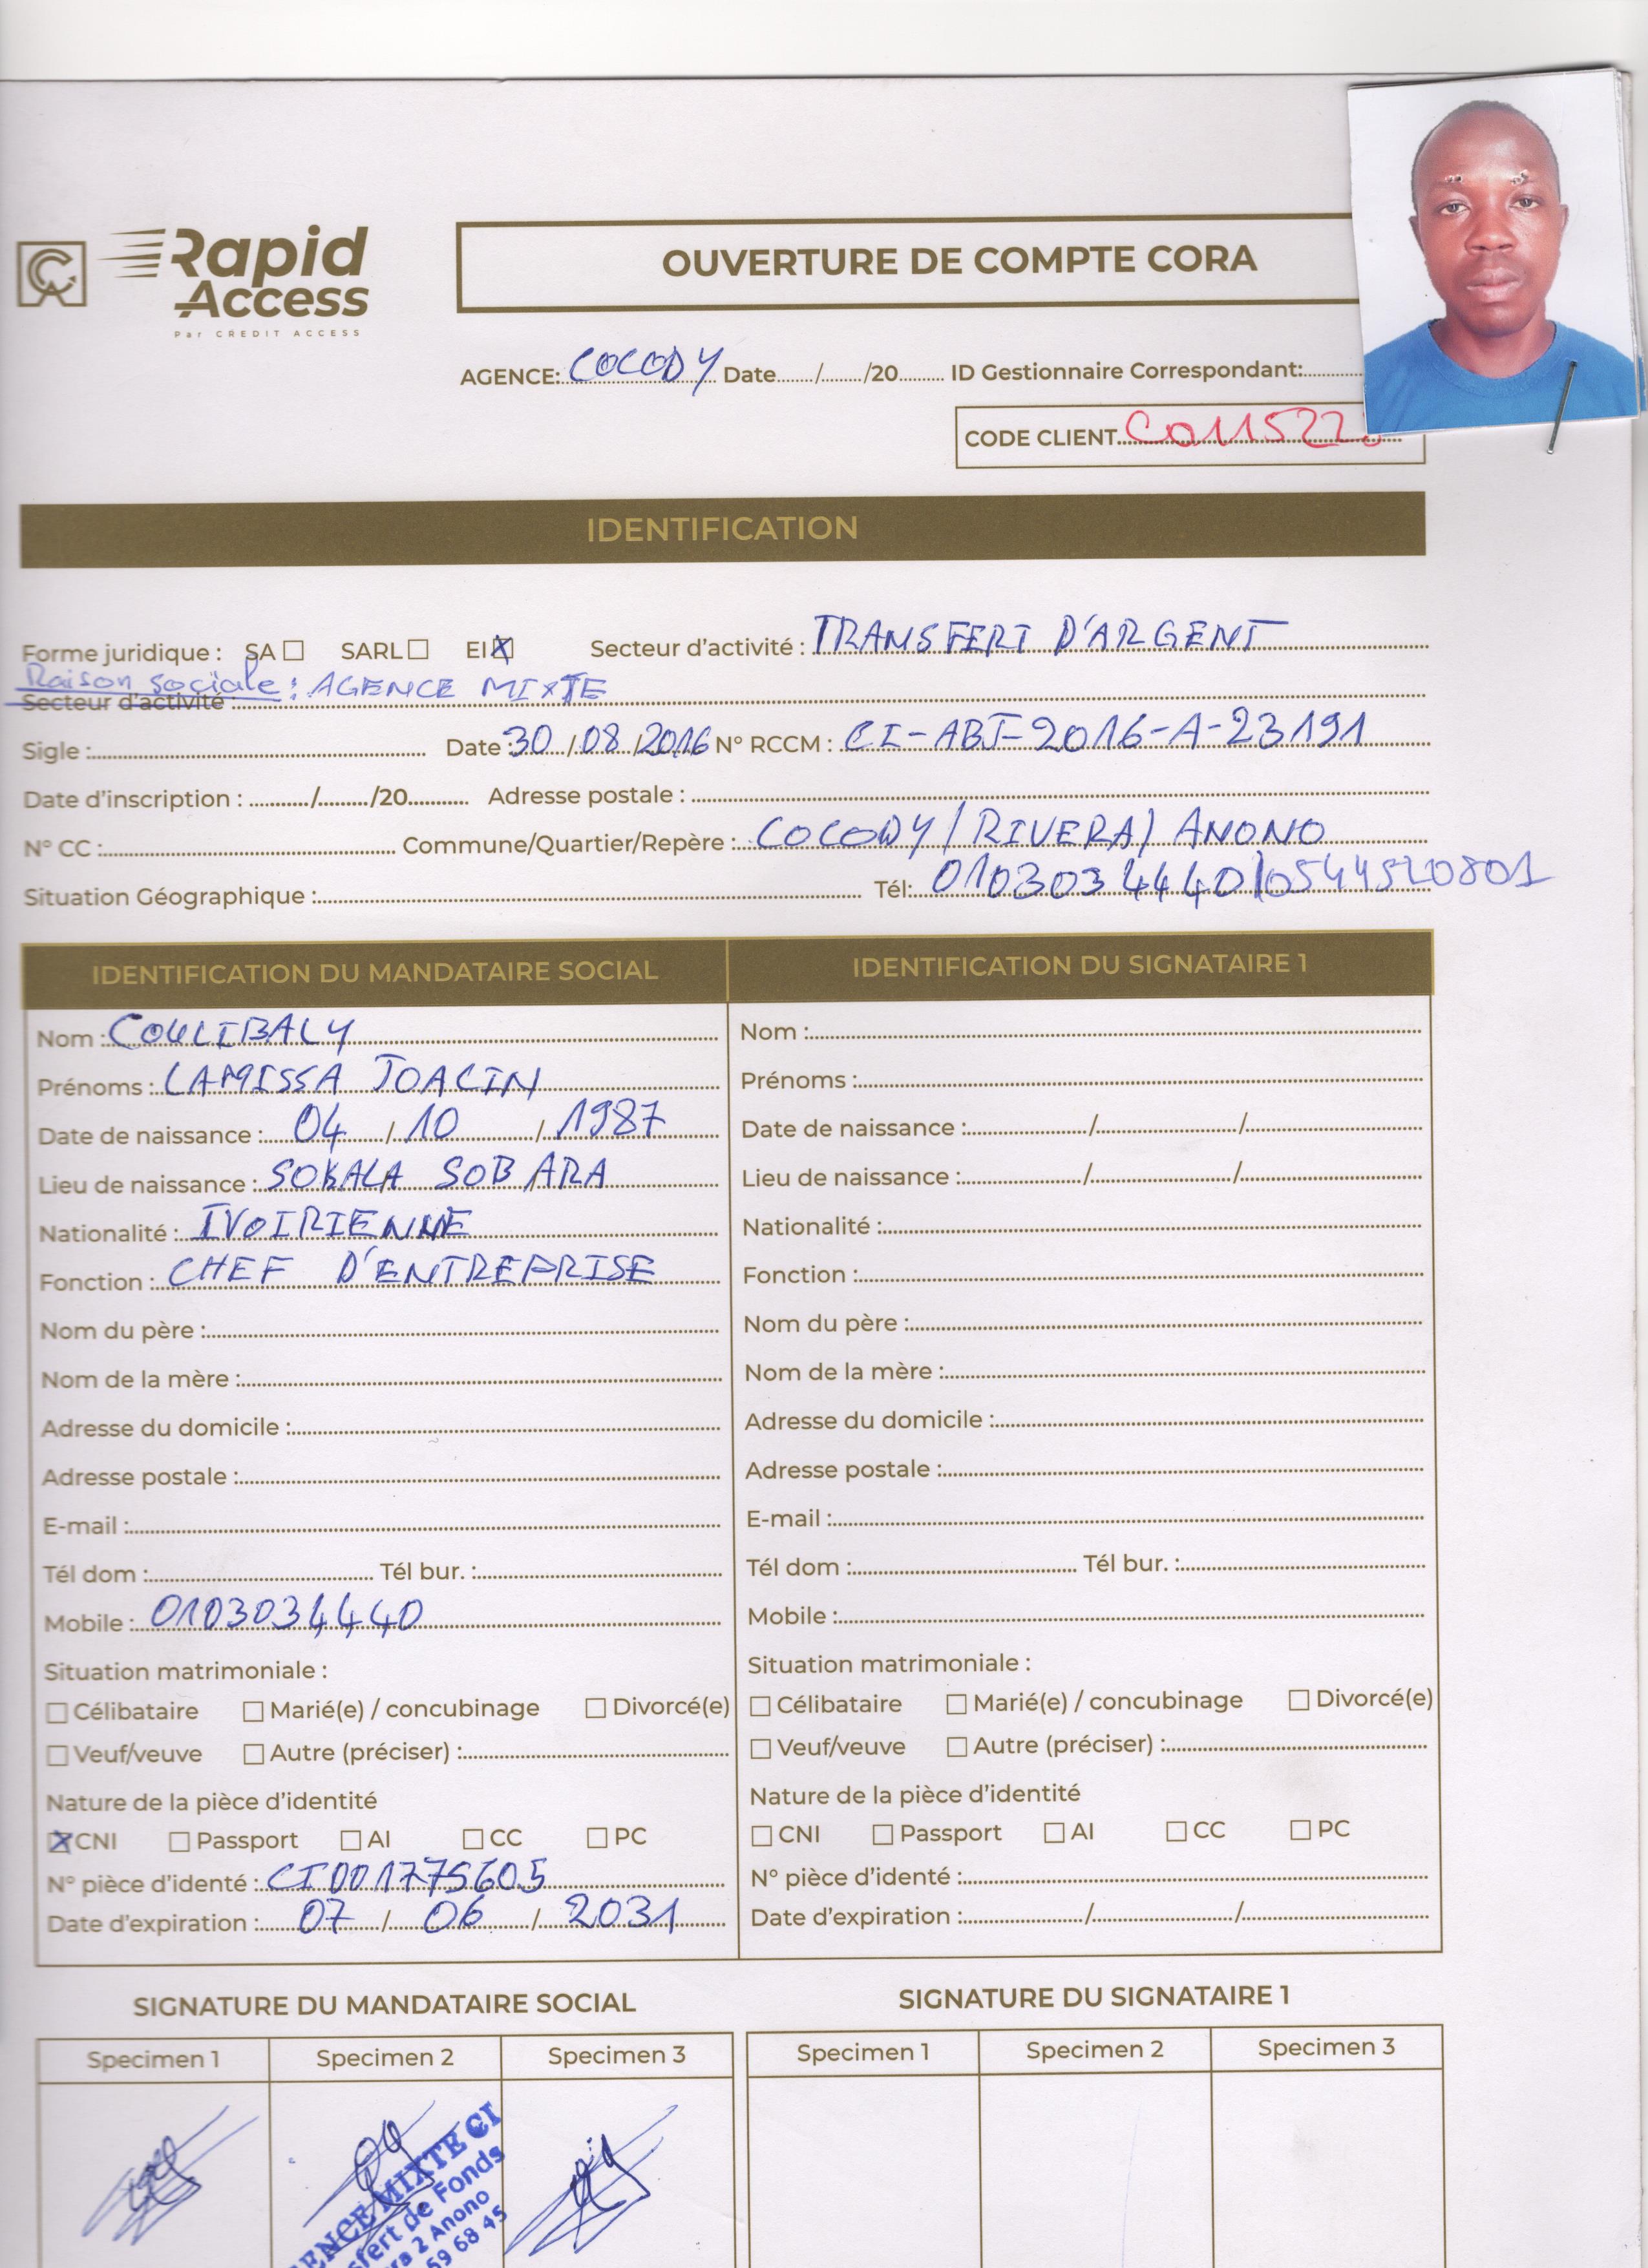 Rapid
Access
Par CREDIT ACCESS
OUVERTURE DE COMPTE CORA
AGENCE: COCODY Date....../....../20...... ID Gestionnaire Correspondant:
CODE CLIENT C011522
IDENTIFICATION
Forme juridique : SA ☐ SARL ☐ EI ☒ Secteur d'activité : TRANSFERT D'ARGENT
Raison sociale : AGENCE MIXTE
Secteur d'activité :
Sigle : Date : 30 / 08 / 2016 N° RCCM : CI-ABJ-2016-A-23191
Date d'inscription : ....../....../20...... Adresse postale :
N° CC : Commune/Quartier/Repère : COCODY / RIVERA / ANONO
Situation Géographique : Tél: 0103034440/0544520801
IDENTIFICATION DU MANDATAIRE SOCIAL IDENTIFICATION DU SIGNATAIRE 1
Nom : COULIBALY
Prénoms : LAMISSA JOACIN
Date de naissance : 04 / 10 / 1987
Lieu de naissance : SOKALA SOBARA
Nationalité : IVOIRIENNE
Fonction : CHEF D'ENTREPRISE
Nom du père :
Nom de la mère :
Adresse du domicile :
Adresse postale :
E-mail :
Tél dom : Tél bur. :
Mobile : 0103034440
Situation matrimoniale :
☐ Célibataire ☐ Marié(e) / concubinage ☐ Divorcé(e)
☐ Veuf/veuve ☐ Autre (préciser) :
Nature de la pièce d'identité
☒ CNI ☐ Passport ☐ AI ☐ CC ☐ PC
N° pièce d'identé : CI001775605
Date d'expiration : 07 / 06 / 2031
Nom :
Prénoms :
Date de naissance : ....../....../......
Lieu de naissance : ....../....../......
Nationalité :
Fonction :
Nom du père :
Nom de la mère :
Adresse du domicile :
Adresse postale :
E-mail :
Tél dom : Tél bur. :
Mobile :
Situation matrimoniale :
☐ Célibataire ☐ Marié(e) / concubinage ☐ Divorcé(e)
☐ Veuf/veuve ☐ Autre (préciser) :
Nature de la pièce d'identité
☐ CNI ☐ Passport ☐ AI ☐ CC ☐ PC
N° pièce d'identé :
Date d'expiration : ....../....../......
SIGNATURE DU MANDATAIRE SOCIAL SIGNATURE DU SIGNATAIRE 1
Specimen 1 Specimen 2 Specimen 3 Specimen 1 Specimen 2 Specimen 3
ENCE MIXTE CI
sfert de Fonds
ra 2 Anono
59 68 45